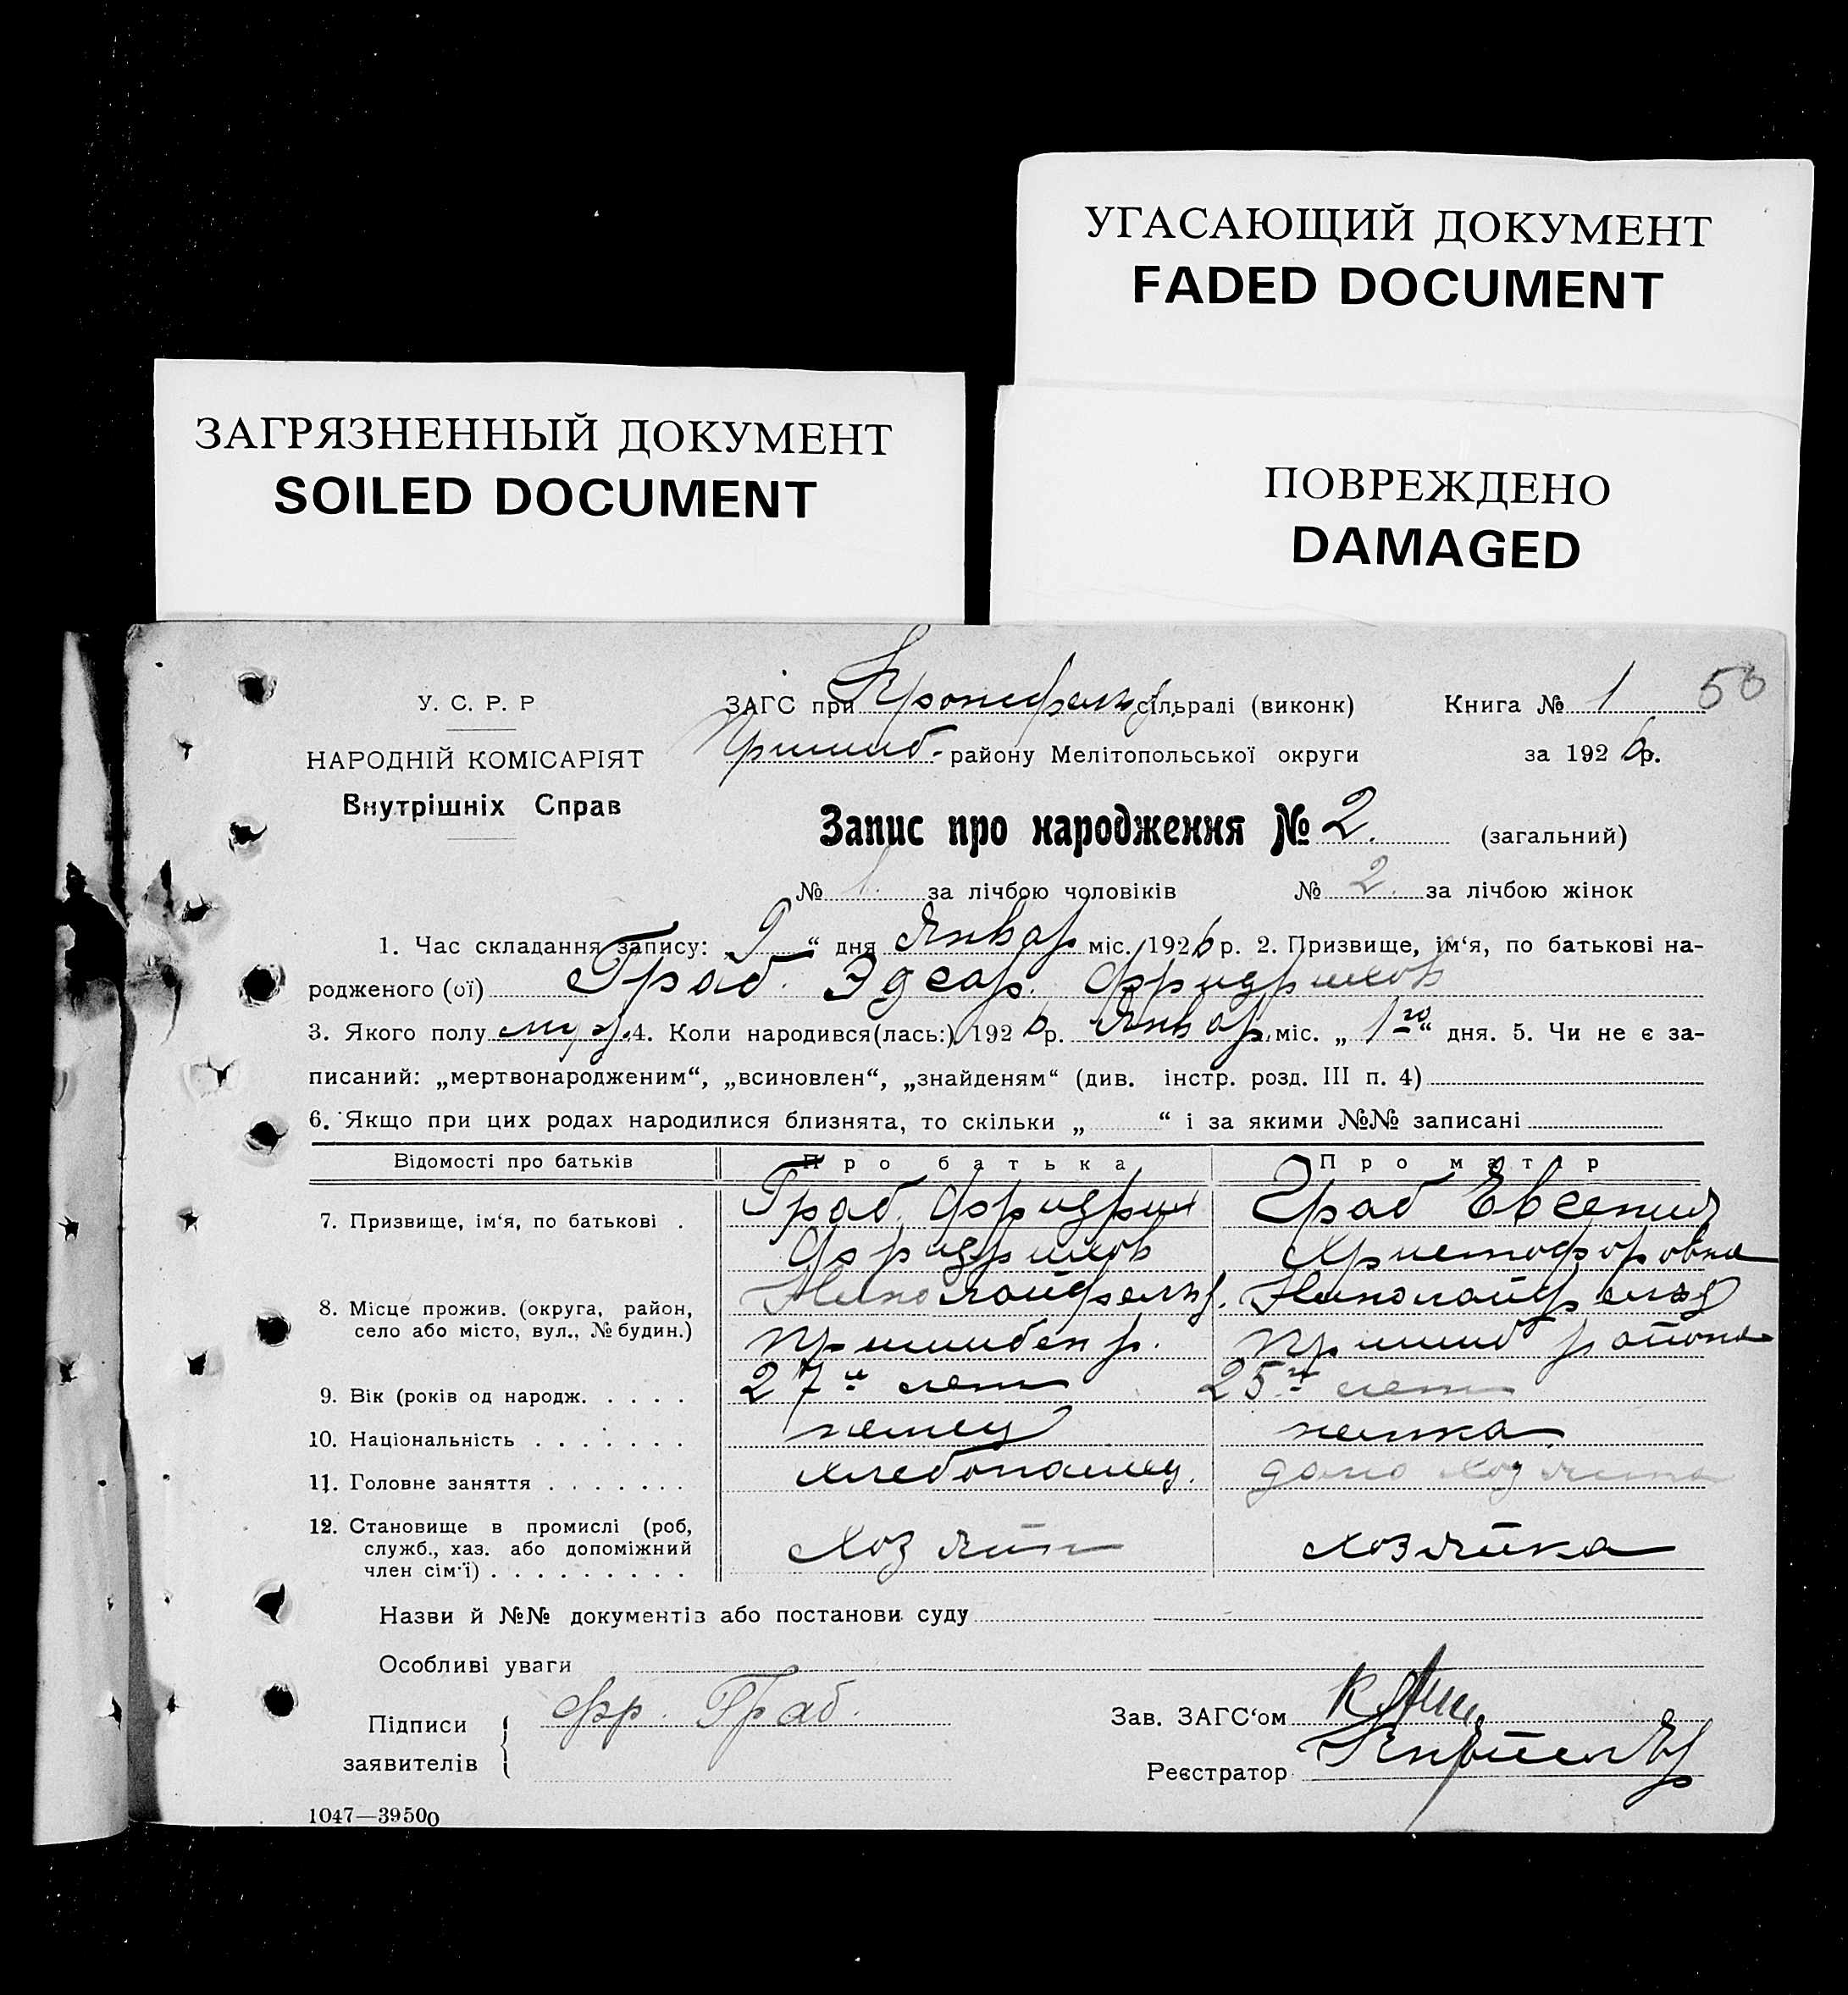 УГАСАЮЩИЙ ДОКУМЕНТ
FADED DOCUMENT
ЗАГРЯЗНЕННЫЙ ДОКУМЕНТ
SOILED DOCUMENT
ПОВРЕЖДЕНО
DAMAGED
У. С. Р. Р
НАРОДНІЙ КОМІСАРІЯТ
Внутрішніх Справ
ЗАГС при Кронсфельд. сільраді (виконк) Книга № 1 50
Пришиб. району Мелітопольської округи за 1926 р.
Запис про народження № 2. (загальний)
№ 1. за лічбою чоловіків № 2. за лічбою жінок
1. Час складання запису: 9 “ дня Январ міс. 1926 р. 2. Призвище, ім‘я, по батькові на-
родженого (ої) Граб. Эдгар. Фридрихов
3. Якого полу муж. 4. Коли народився(лась:) 1926 р. Январ. міс. „ 1го “ дня. 5. Чи не є за-
писаний: „мертвонародженим“, „всиновлен“, „знайденям“ (див. інстр. розд. III п. 4)
6. Якщо при цих родах народилися близнята, то скільки „ “ і за якими №№ записані
Відомості про батьків Про батька Про матір
7. Призвище, ім‘я, по батькові . Граб. Фридрих Граб Евгения
Фридрихов Христофоровна
8. Місце прожив. (округа, район, село або місто, вул., № будин.) Николайфельд. Николайфельд
Пришибск р. Пришиб района
9. Вік (років од народж. . . . . 27и лет 25ти лет
10. Національність . . . . . . . немец немка
11. Головне заняття . . . . . . . хлебопашец. домохозяйка
12. Становище в промислі (роб,
служб., хаз. або допоміжний
член сім‘ї) . . . . . . . . . хозяин хозяйка
Назви й №№ документів або постанови суду
Особливі уваги
Підписи
заявителів
Фр. Граб.
Зав. ЗАГС‘ом
Реєстратор
1047—39500